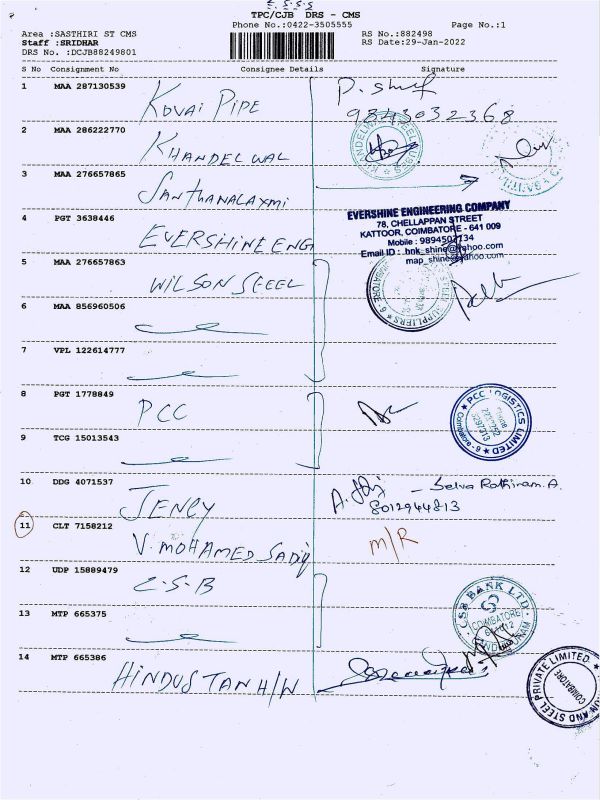 TPC/CJB DRS - CMS
Phone No.:0422-3505555
Page No.:1
Area :SASTHIRI ST CMS
RS No.:882498
Staff :SRIDHAR
RS Date:29-Jan-2022
DRS No. :DCJB88249801
S No Consignment No Consignee Details Signature
1 MAA 287130539
KOVAI PIPE
9843032368
2 MAA 286222770
KHANDELWAL
3 MAA 276657865
SANTHANALAXMI
4 PGT 3638446
EVERSHINE ENG
EVERSHINE ENGINEERING COMPANY
78, CHELLAPPAN STREET
KATTOOR, COIMBATORE - 641 009
Mobile : 9894502734
Email ID : hnk_shine@yahoo.com
map_shine@yahoo.com
5 MAA 276657863
WILSON SEEEL
6 MAA 856960506
7 VPL 122614777
8 PGT 1778849
PCC
PCC LOGISTICS LIMITED
9 TCG 15013543
10 DDG 4071537
JENCY
Selva Rathinam.A.
8012944813
11 CLT 7158212
V.MOHAMED SADIQ
M/R
12 UDP 15889479
C-S-B
CSB BANK LTD
COIMBATORE
13 MTP 665375
14 MTP 665386
HINDUSTAN H/W
PRIVATE LIMITED
COIMBATORE